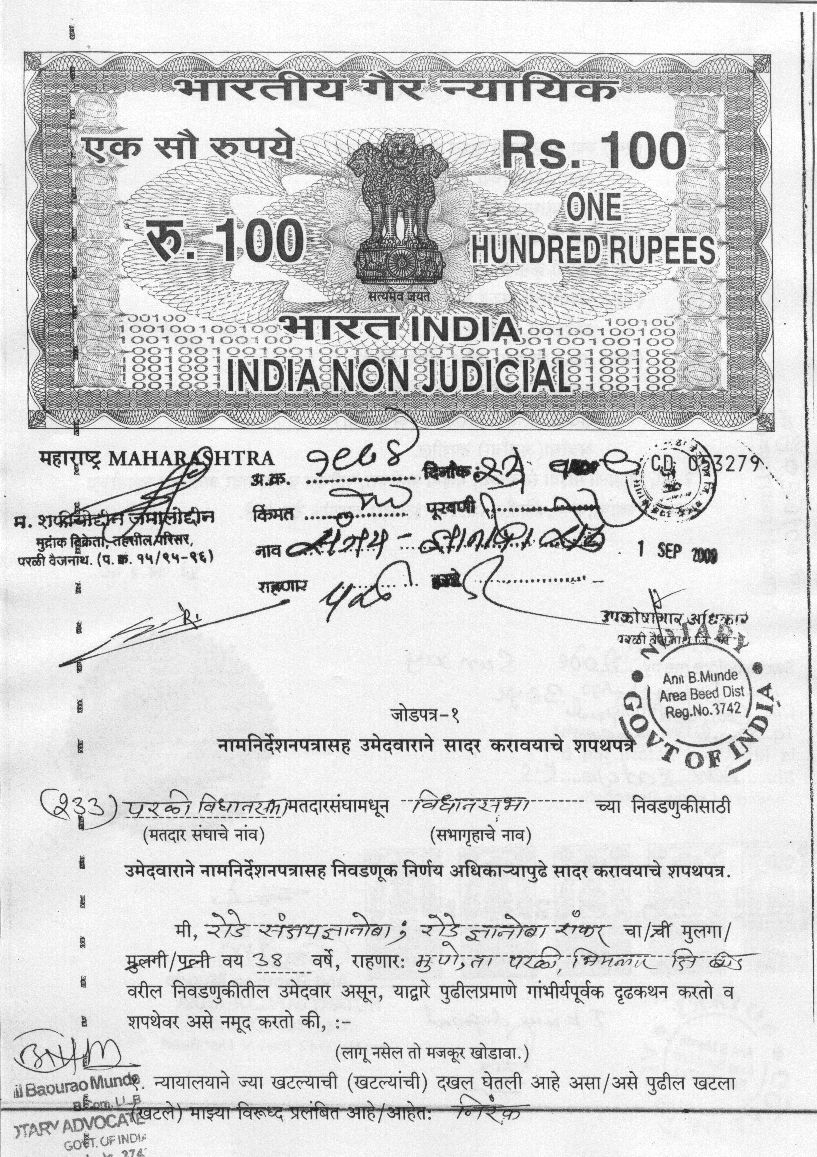 भारतीय गैर न्यायिक
एक सौ रुपये
Rs. 100
रु. 100
ONE
HUNDRED RUPEES
सत्यमेव जयते
भारत INDIA
INDIA NON JUDICIAL
महाराष्ट्र MAHARASHTRA
अ.क्र.
दिनांक
CD 053279
म. शफीयोद्दीन जमालोद्दीन
किंमत
पुरवणी
मुद्रांक विक्रेता, तहसील परिसर,
नाव
1 SEP 2009
परळी वैजनाथ. (प. क्र. १५/९५-९६)
राहणार परळी
उपकोषागार अधिकार
NOTARY
Anil B.Munde
Area Beed Dist
Reg.No.3742
GOVT OF INDIA
जोडपत्र-१
नामनिर्देशनपत्रासह उमेदवाराने सादर करावयाचे शपथपत्र
(२33) परळी विधानसभा मतदारसंघामधून विधानसभा च्या निवडणुकीसाठी
(मतदार संघाचे नांव) (सभागृहाचे नाव)
उमेदवाराने नामनिर्देशनपत्रासह निवडणूक निर्णय अधिकाऱ्यापुढे सादर करावयाचे शपथपत्र.
मी, रोडे संजय ज्ञानोबा; रोडे ज्ञानोबा शंकर चा/ची मुलगा/
मुलगी/पत्नी वय 38 वर्षे, राहणार: ता परळी,
वरील निवडणुकीतील उमेदवार असून, याद्वारे पुढीलप्रमाणे गांभीर्यपूर्वक दृढकथन करतो व
शपथेवर असे नमूद करतो की, :-
(लागू नसेल तो मजकूर खोडावा.)
il Bapurao Munde
१. न्यायालयाने ज्या खटल्याची (खटल्यांची) दखल घेतली आहे असा/असे पुढील खटला
B.Com. LL-B
(खटले) माझ्या विरूध्द प्रलंबित आहे/आहेत: निरंक
OTARY ADVOCATE
GOVT. OF INDIA